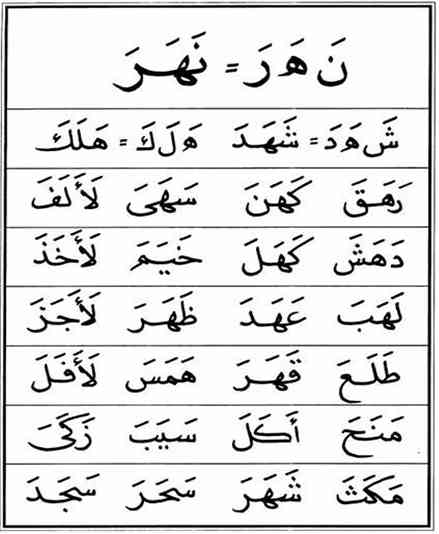 نَ هَ رَ = نَهَرَ
شَ هَ دَ = شَهَدَ هَ لَ كَ = هَلَكَ
رَهَقَ كَهَنَ سَهَىَ لَأَلَفَ
دَهَشَ كَهَلَ خَيَمَ لَأَخَذَ
لَهَبَ عَهَدَ ظَهَرَ لَأَجَزَ
طَلَعَ قَهَرَ هَمَسَ لَأَفَلَ
مَنَحَ أَكَلَ سَيَبَ زَكَىَ
مَكَثَ شَهَرَ سَحَرَ سَجَدَ